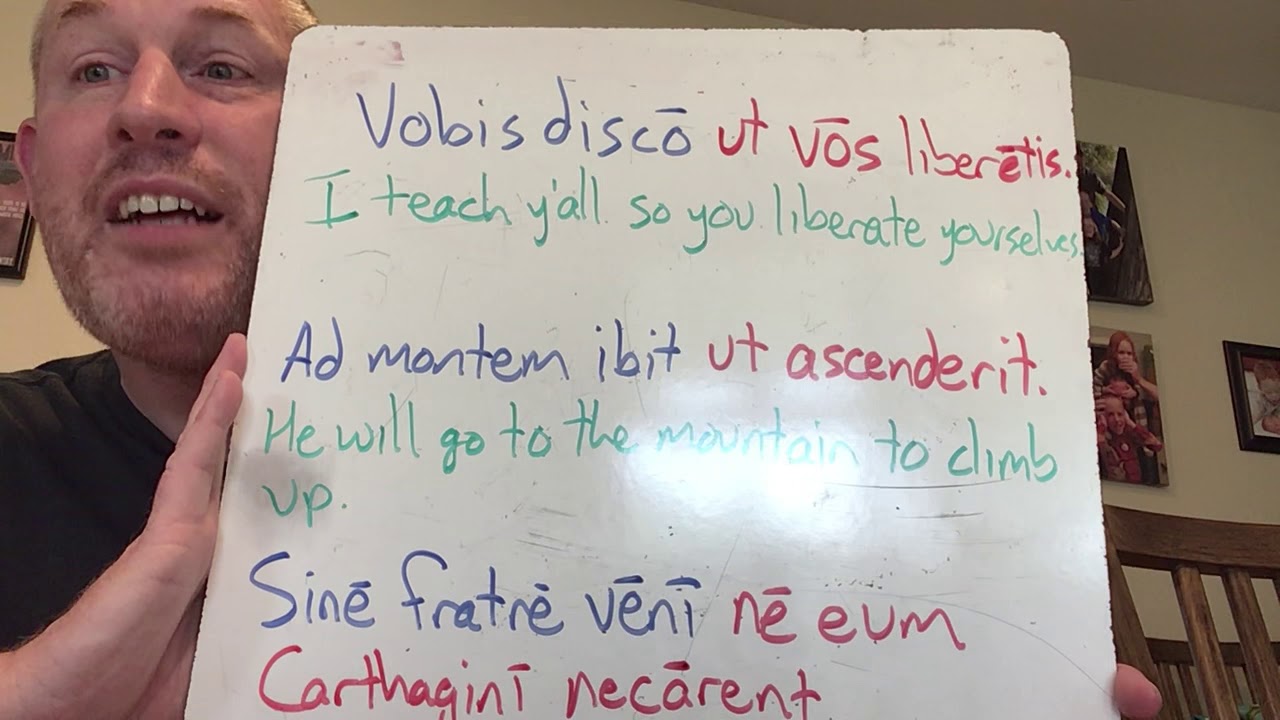 Vobis discō ut vōs liberētis.
I teach y'all so you liberate yourselves.
Ad montem ibit ut ascenderit.
He will go to the mountain to climb
up.
Sinē fratrē vēnī nē eum
Carthaginī necārent